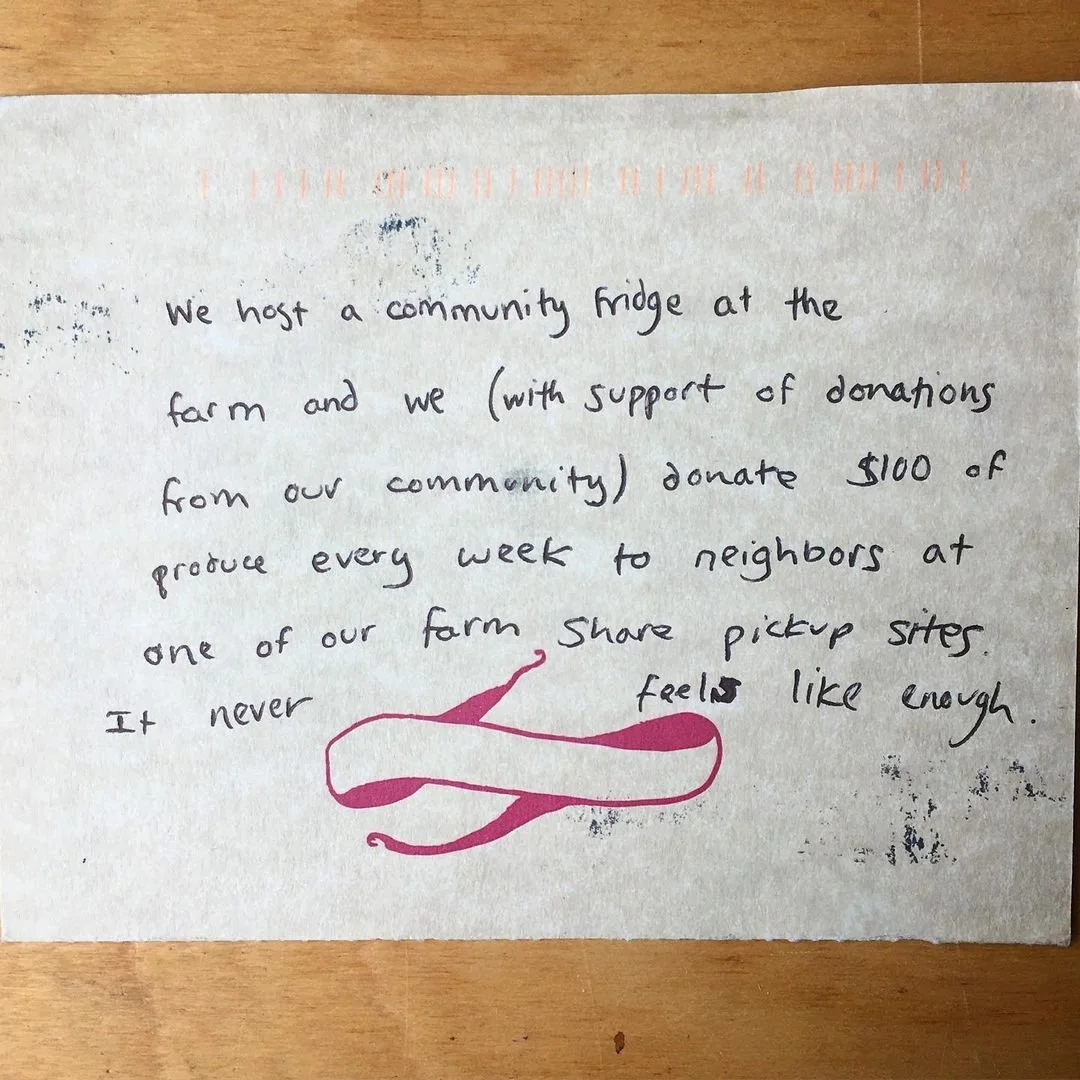 We host a community fridge at the
farm and we (with support of donations
from our community) donate $100 of
produce every week to neighbors at
one of our farm share pickup sites.
It never feels like enough.